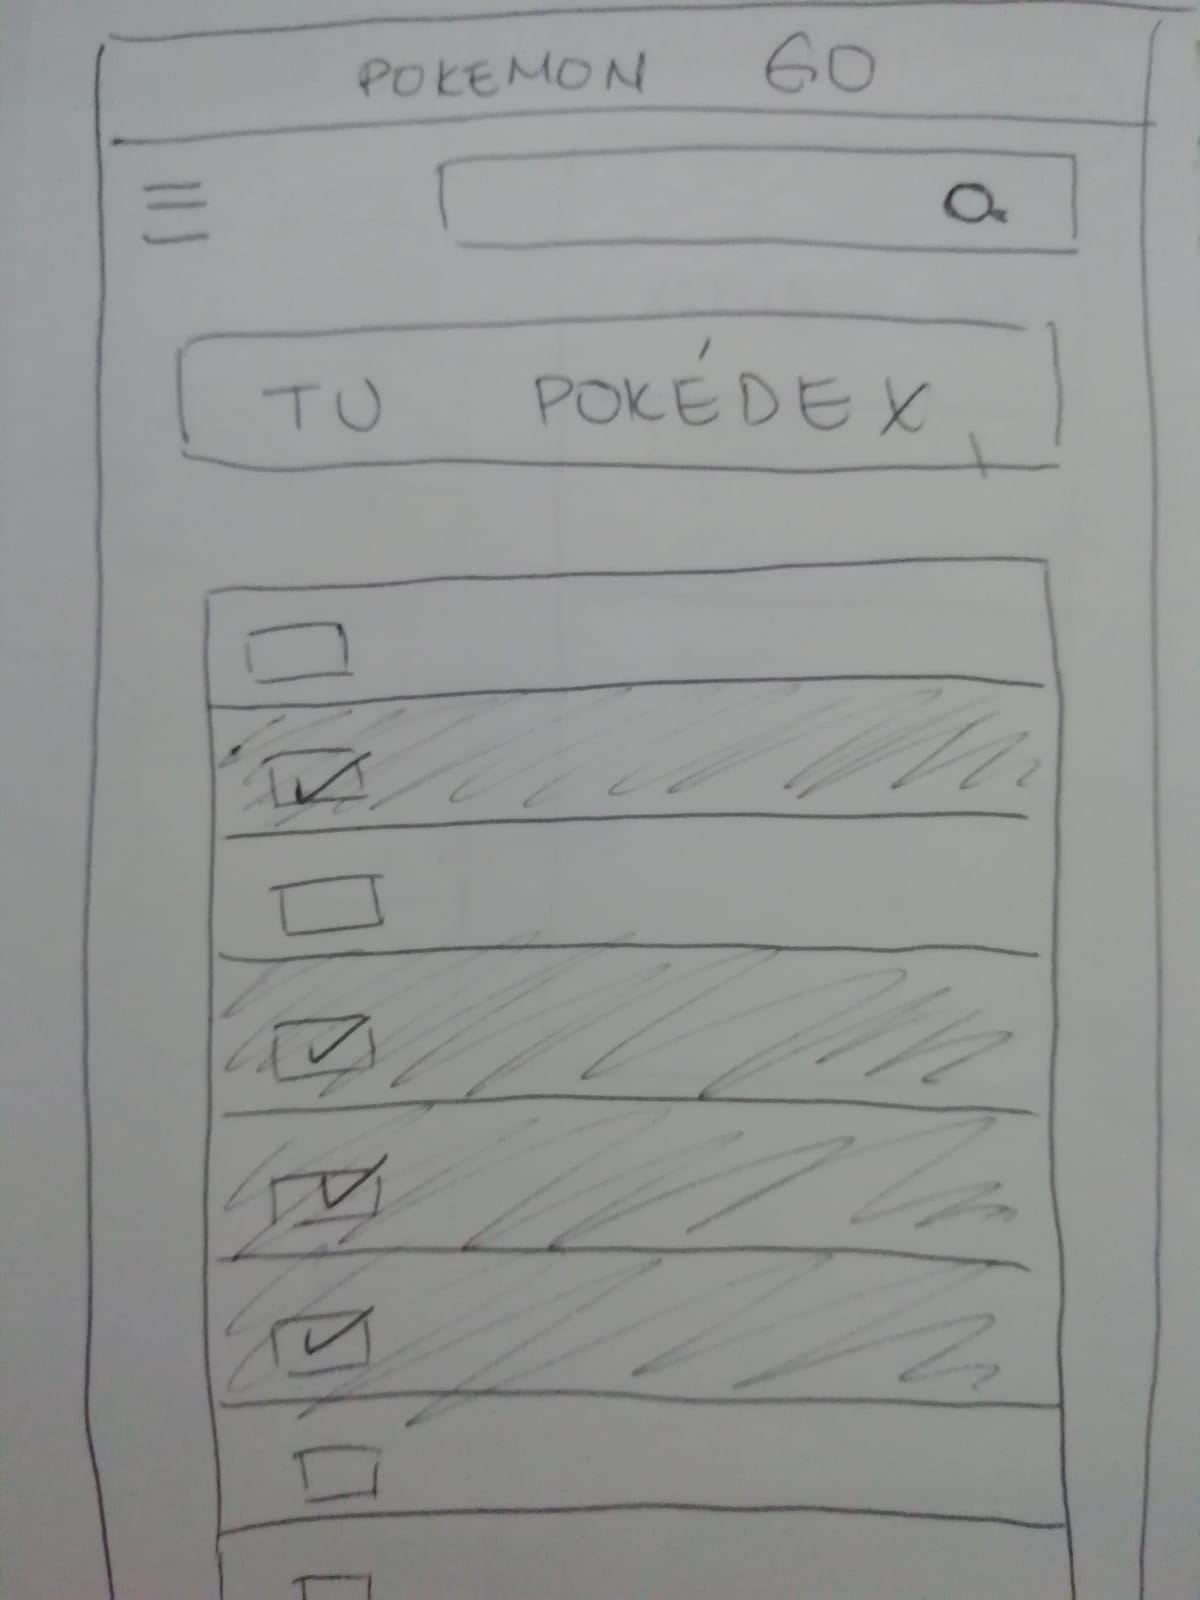 POKEMON GO
TU POKÉDEX